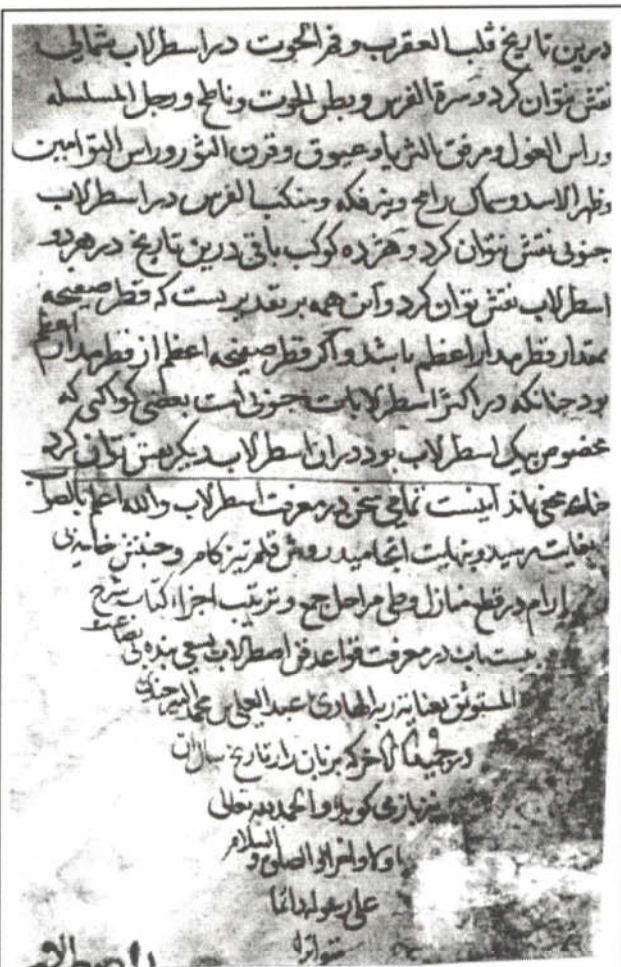 درین تاریخ قلب العقرب و فم الحوت در اسطرلاب شمالی
نقش نتوان کرد و سرة الفرس و بطن الحوت و ناطح و رجل المسلسله
و راس الغول و مرفق الثریا و عیوق و قرن الثور و راس التوامین
و ظهر الاسد و سماک رامح و نیر فکه و منکب الفرس در اسطرلاب
جنوبی نقش نتوان کرد و هژده کوکب باقی درین تاریخ در هر دو
اسطرلاب نقش توان کرد و این همه بر تقدیریست که قطر صفیحه
بمقدار قطر مدار اعظم باشد و اکر قطر صفیحه اعظم از قطر مدار اعظم
بود چنانکه در اکثر اسطرلابات جنوبی است بعضی کواکبی که
مخصوص بیک اسطرلاب بود در ان اسطرلاب دیکر نقش توان کرد
مخفی نماند اینست تمامی سخن در معرفت اسطرلاب والله اعلم بالصواب
بغایت رسید و بنهایت انجامید روش قلم تیز کام و جنبش خامه بی
ارام در قطع منازل و طی مراحل جمع و ترتیب اجزاء کتاب شرح
بیست باب در معرفت قواعد فن اصطرلاب بسعی بنده بی بضاعت
المستوثق بعنایة ربه الهادی عبد العلی بن محمد البیرجندی
در جمیدیالاخر که بزبان راز تاریخ سال ان
نیز باز می کوید و الحمد لله تعالی
اولا و اخرا و الصلوة و السلام
علی رسوله دائما
متواترا